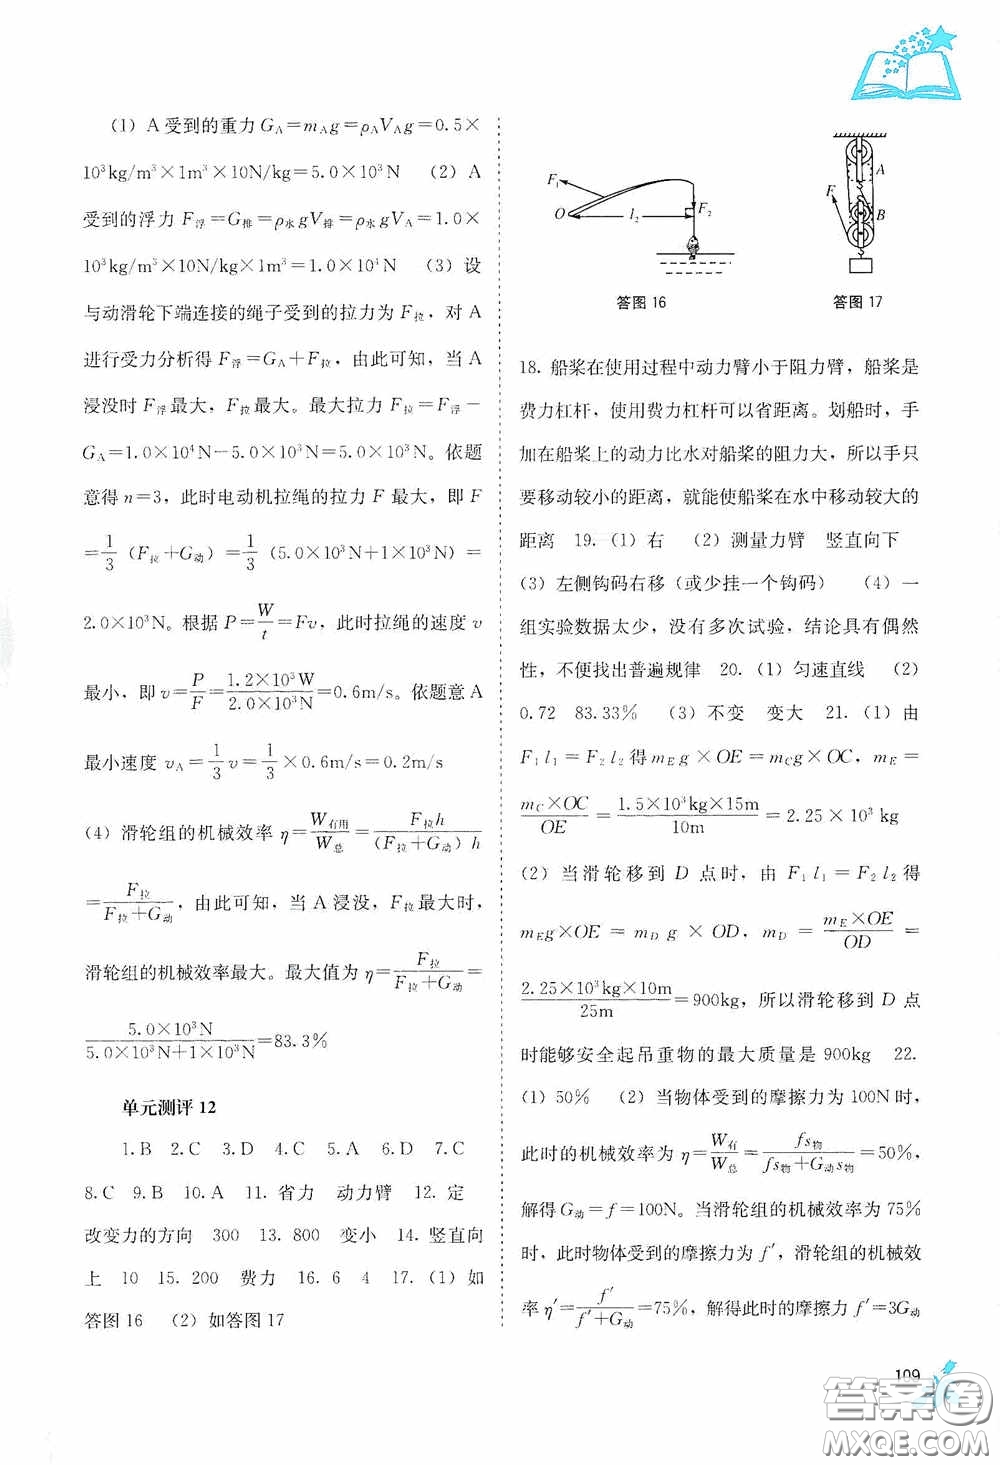 (1) A受到的重力G_A=m_Ag=ρ_AV_Ag=0.5×
10³kg/m³×1m³×10N/kg=5.0×10³N (2) A
受到的浮力F_浮=G_排=ρ_水gV_排=ρ_水gV_A=1.0×
10³kg/m³×10N/kg×1m³=1.0×10⁴N (3) 设
与动滑轮下端连接的绳子受到的拉力为F_拉，对A
进行受力分析得F_浮=G_A+F_拉，由此可知，当A
浸没时F_浮最大，F_拉最大。最大拉力F_拉=F_浮-
G_A=1.0×10⁴N-5.0×10³N=5.0×10³N。依题
意得n=3，此时电动机拉绳的拉力F最大，即F
=1/3(F_拉+G_动)=1/3(5.0×10³N+1×10³N)=
2.0×10³N。根据P=W/t=Fv，此时拉绳的速度v
最小，即v=P/F=1.2×10³W/2.0×10³N=0.6m/s。依题意A
最小速度v_A=1/3v=1/3×0.6m/s=0.2m/s
(4) 滑轮组的机械效率η=W_有用/W_总=F_拉h/(F_拉+G_动)h
=F_拉/(F_拉+G_动)，由此可知，当A浸没，F_拉最大时，
滑轮组的机械效率最大。最大值为η=F_拉/(F_拉+G_动)=
5.0×10³N/(5.0×10³N+1×10³N)=83.3%
单元测评12
1.B 2.C 3.D 4.C 5.A 6.D 7.C
8.C 9.B 10.A 11.省力 动力臂 12.定
改变力的方向 300 13.800 变小 14.竖直向
上 10 15.200 费力 16.6 4 17.(1)如
答图16 (2)如答图17
F₁
O
l₂
F₂
答图16
A
F
B
答图17
18.船桨在使用过程中动力臂小于阻力臂，船桨是
费力杠杆，使用费力杠杆可以省距离。划船时，手
加在船桨上的动力比水对船桨的阻力大，所以手只
要移动较小的距离，就能使船桨在水中移动较大的
距离 19.(1)右 (2)测量力臂 竖直向下
(3)左侧钩码右移（或少挂一个钩码） (4)一
组实验数据太少，没有多次试验，结论具有偶然
性，不便找出普遍规律 20.(1)匀速直线 (2)
0.72 83.33% (3)不变 变大 21.(1)由
F₁l₁=F₂l₂得m_Eg×OE=m_Cg×OC，m_E=
m_C×OC/OE=1.5×10³kg×15m/10m=2.25×10³kg
(2)当滑轮移到D点时，由F₁l₁=F₂l₂得
m_Eg×OE=m_Dg×OD，m_D=m_E×OE/OD=
2.25×10³kg×10m/25m=900kg，所以滑轮移到D点
时能够安全起吊重物的最大质量是900kg 22.
(1)50% (2)当物体受到的摩擦力为100N时，
此时的机械效率为η=W_有/W_总=fs_物/(fs_物+G_动s_物)=50%，
解得G_动=f=100N。当滑轮组的机械效率为75%
时，此时物体受到的摩擦力为f′，滑轮组的机械效
率η′=f′/(f′+G_动)=75%，解得此时的摩擦力f′=3G_动
109
答案圈
MXQE.COM